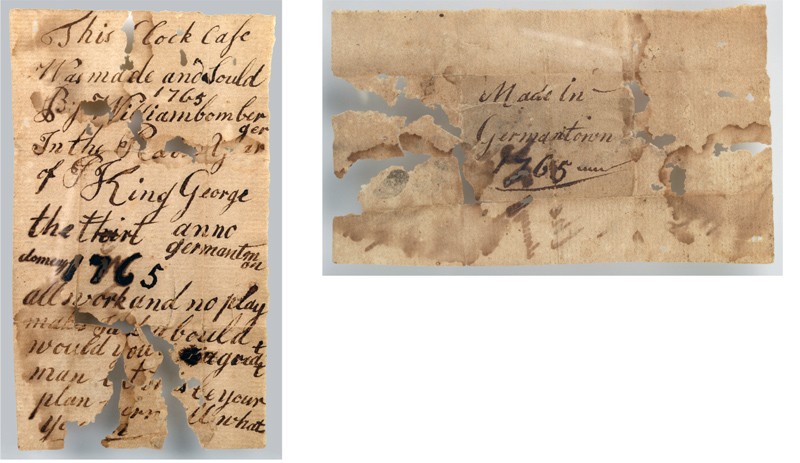 This Clock Case
Was made and Sould
1765
By Williambomber
ger
In the
of King George
the thirt anno
germanton
domey 1765
all work and no play
bould
would you a great
man your
plan what
Made in
Germantown
1765